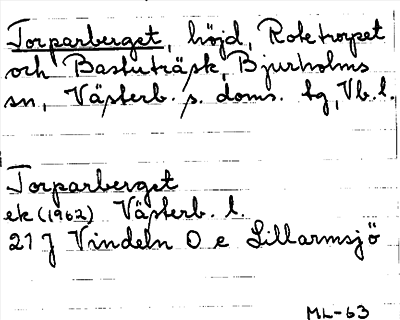 Torparberget, höjd, Roketorpet
och Bastuträsk, Bjurholms
sn, Västerb. s. doms. tg, Vb. l.
Torparberget
ek (1962) Västerb. l.
21 J Vindeln O e Lillarmsjö
ML-63